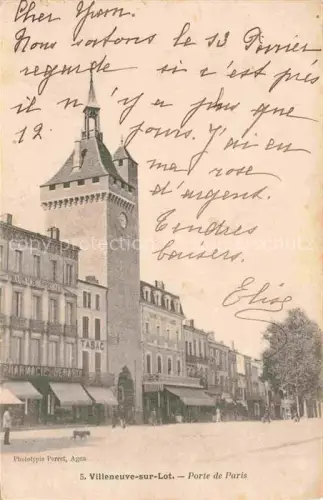 Cher Yvon.
Nous partons le 13 Février
regarde si c'est près
il n'y a plus que
12 jours. J'ai en
ma rose
d'argent.
Tendres
baisers.
Elise
TABAC
PHARMACIE
Phototypie Perret, Agen
5. Villeneuve-sur-Lot. — Porte de Paris